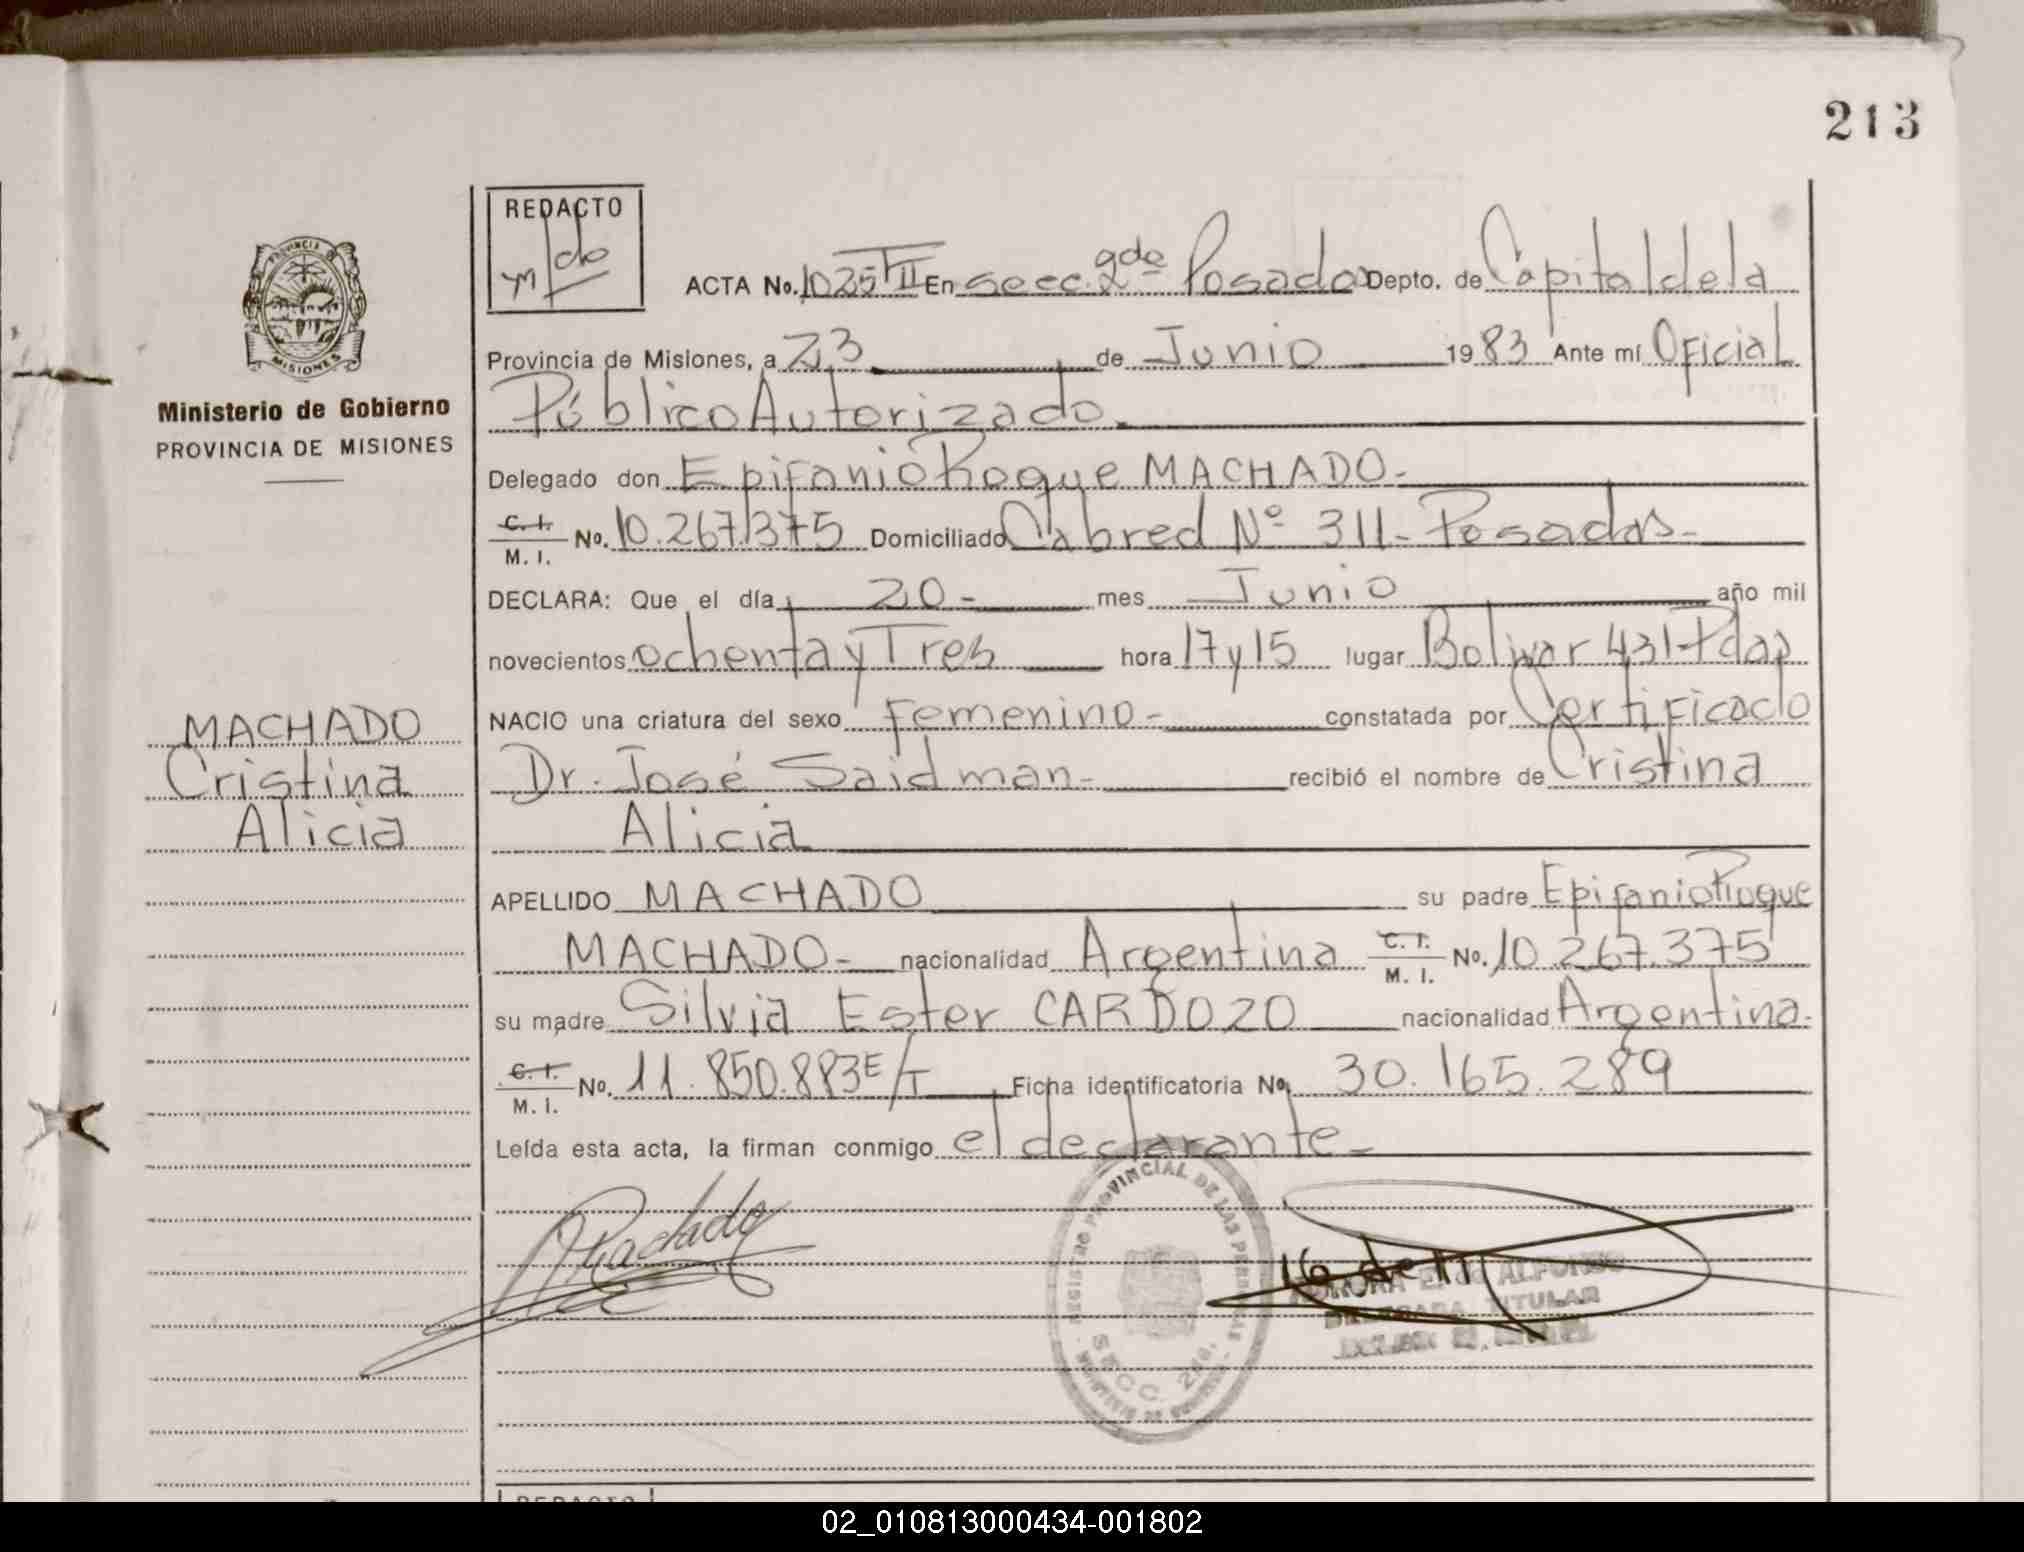 213
REDACTO
ACTA No. 1025 TII En secc. 2da Posadas Depto. de Capital de la
Provincia de Misiones, a 23 de Junio 1983 Ante mí Oficial
Público Autorizado.
Delegado don Epifanio Roque MACHADO-
C. I. M. I. No. 10.267.375 Domiciliado Cabred Nº 311- Posadas-
DECLARA: Que el día 20- mes Junio año mil
novecientos ochenta y Tres hora 17 y 15 lugar Bolivar 431-Pdas
NACIO una criatura del sexo Femenino- constatada por Certificado
Dr. José Saidman- recibió el nombre de Cristina
Alicia
APELLIDO MACHADO su padre Epifanio Roque
MACHADO- nacionalidad Argentina C. I. M. I. No. 10.267.375
su madre Silvia Ester CARDOZO nacionalidad Argentina.
C. I. M. I. No. 11.850.883 E/T Ficha identificatoria No. 30.165.289
Leída esta acta, la firman conmigo el declarante-
PROVINCIA
MISIONES
Ministerio de Gobierno
PROVINCIA DE MISIONES
MACHADO
Cristina
Alicia
Machado
REGISTRO PROVINCIAL DE LAS PERSONAS
SECC. 2da.
ALFONSO
DELEGADA TITULAR
REDACTO
02_010813000434-001802